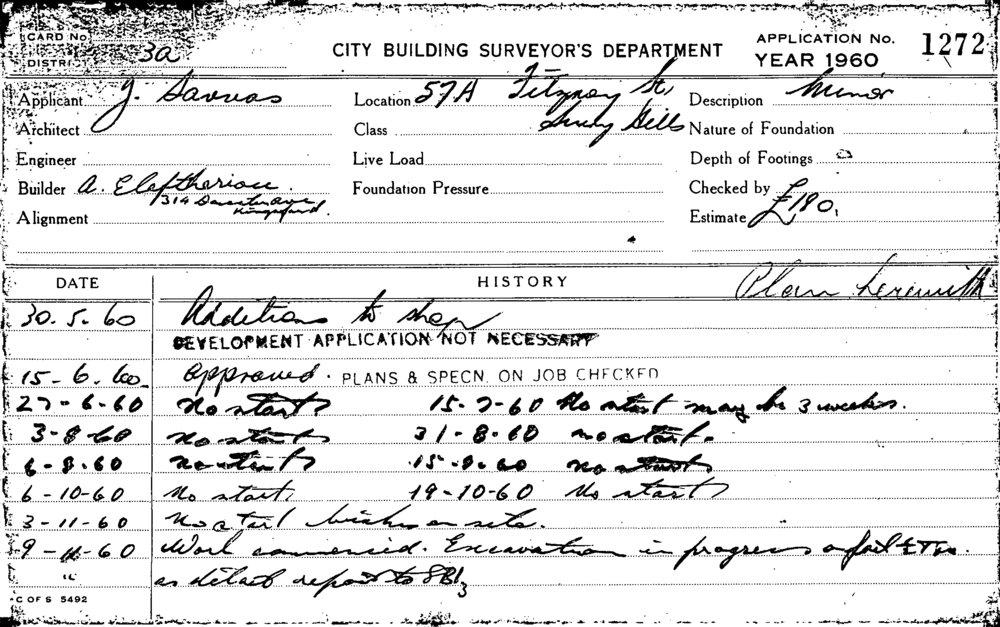 CARD No
DISTRICT 3a
CITY BUILDING SURVEYOR'S DEPARTMENT
APPLICATION No. 1272
YEAR 1960
Applicant J. Savvas
Location 57A Fitzroy St,
Surry Hills
Description Minor
Architect
Class
Nature of Foundation
Engineer
Live Load
Depth of Footings
Builder A. Eleftheriou.
314
Kingsford.
Foundation Pressure
Checked by
Alignment
Estimate £180.
DATE
HISTORY
Plan herewith
30.5.60 Additions to shop
DEVELOPMENT APPLICATION NOT NECESSARY
15-6-60 Approved. PLANS & SPECN. ON JOB CHECKED
27-6-60 No start 15-7-60 No start may be 3 weeks.
3-8-60 no start 31-8-60 no start.
6-9-60 no start 15-9-60 no start
6-10-60 No start. 19-10-60 No start
3-11-60 No start bricks on site.
9-11-60 Work commenced. Excavation in progress
" as detail report to SBI
C OF S 5492